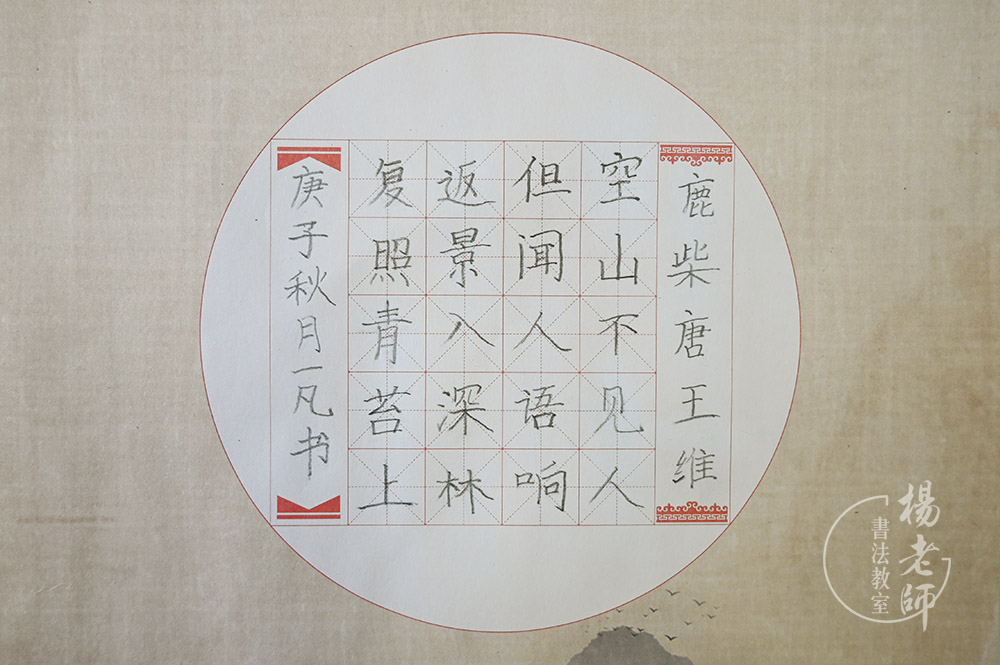 鹿柴唐王维
空山不见人
但闻人语响
返景入深林
复照青苔上
庚子秋月一凡书
楊老師
書法教室